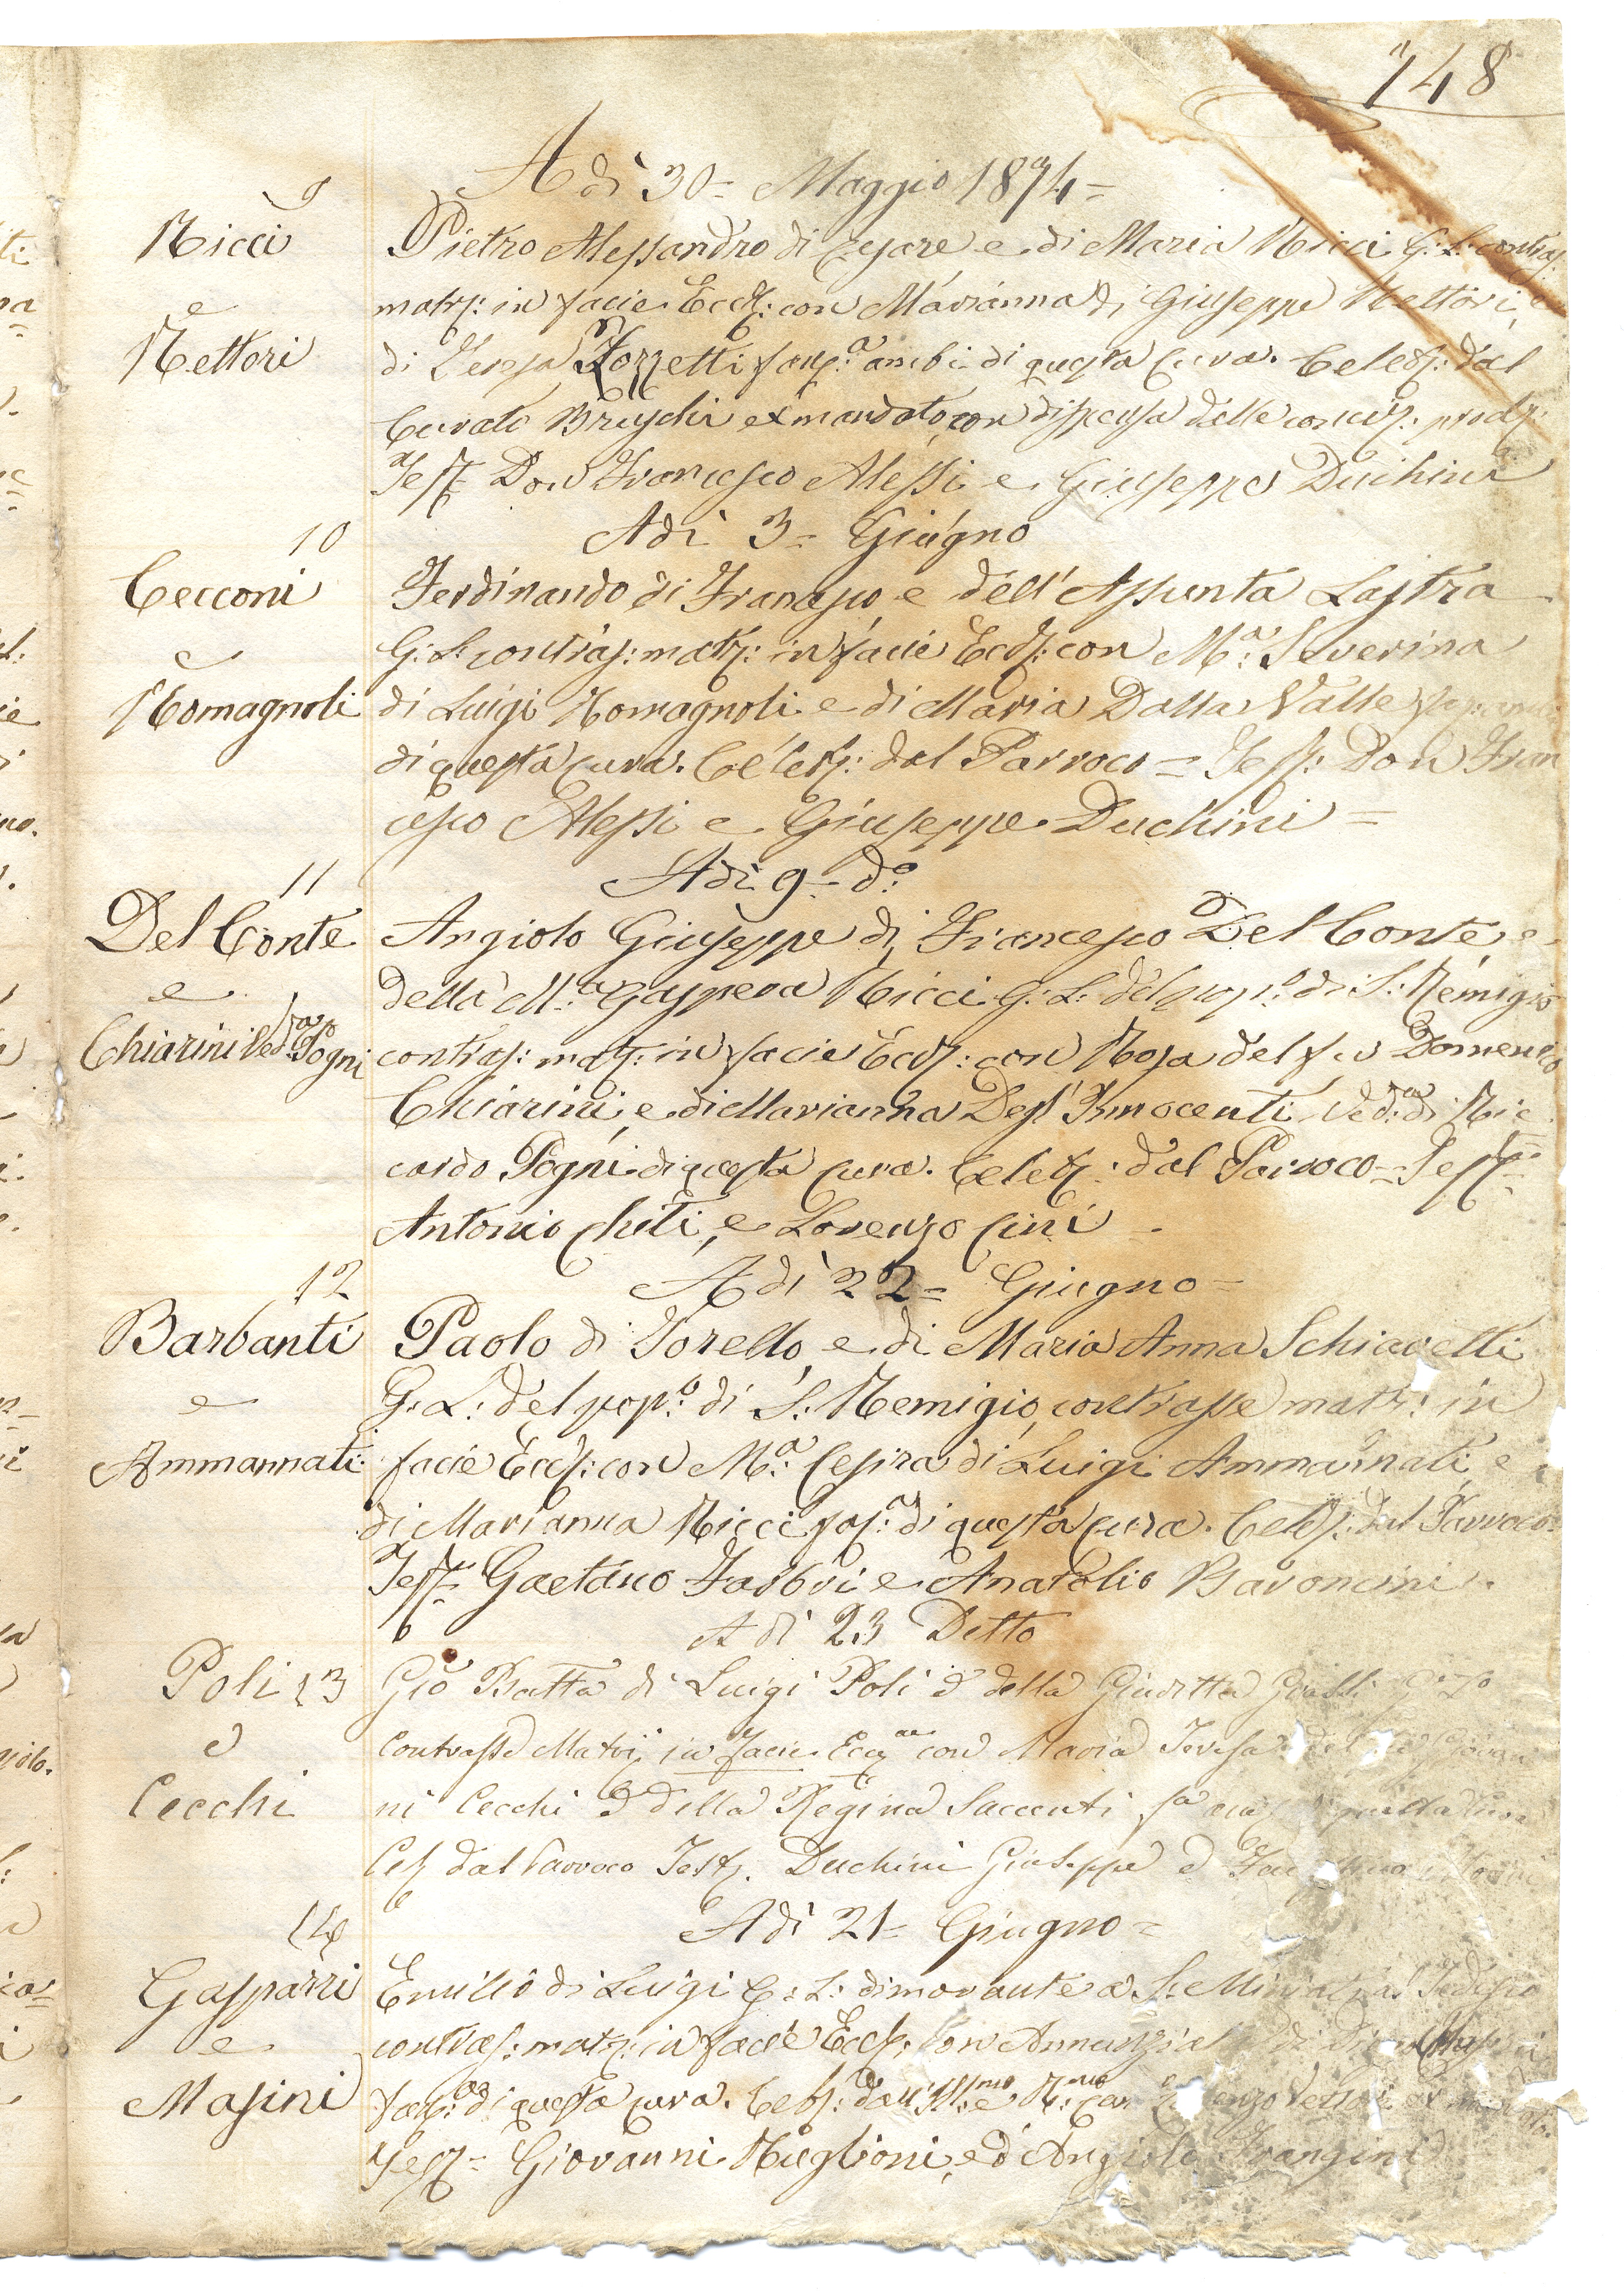 148
A dì 30= Maggio 1874=
9
Ricci
e
Rettori
Pietro Alessandro di Cesare e di Maria Ricci G: L: contras:
matr: in facie Eccl: con Marianna di Giuseppe Rettori, e
di Teresa Torzetti fan:ª ambi di questa Cura. Celeb: dal
Curato Bruschi ex mandato, con dispensa dalle
Test= Don Francesco Alessi e Giuseppe Duchini
Adì 3= Giugno
10
Cecconi
e
Romagnoli
Ferdinando di Francesco e dell'Assunta Lastra
G: L: contras: matr: in facie Eccl: con M:ª Severina
di Luigi Romagnoli e di Maria Dalla Valle
di questa Cura. Celeb: dal Parroco = Test: Don Fran
cesco Alessi e Giuseppe Duchini =
Adì 9= d:º
11
Del Conte
e
Chiarini Ved:ª Pogni
Angiolo Giuseppe di Francesco Del Conte, e
della M:ª Gaspera Ricci G: L: del pop:º di S: Remigio
contras: matr: in facie Eccl: con Rosa del fu Domenico
Chiarini, e di Marianna Degl'Innocenti Ved:ª di Ric
cardo Pogni di questa Cura. Celeb: dal Parroco = Test=
Antonio Chiti, e Lorenzo Cini -
A dì 22= Giugno=
12
Barbanti
e
Ammannati
Paolo di Torello, e di Maria Anna Schiavelli
G: L: del pop:º di S: Remigio, contrasse matr: in
facie Eccl: con M:ª Cesira di Luigi Ammannati, e
di Marianna Ricci fan:ª di questa Cura. Celeb: dal Parroco=
Test= Gaetano Fabbri e Anatolio Baroncini.
A dì 23 Detto
Poli 13
e
Cecchi
Gio Batta di Luigi Poli e della Giuditta G. L.
Contrasse Matr: in facie Eccªᵉ con Maria Teresa del fu Giovan
ni Cecchi e della Regina Saccenti fª questa Cura
Cel dal Parroco Test. Duchini Giuseppe e
A dì 21= Giugno=
14
Gasparri
e
Masini
Emilio di Luigi G: L: dimorante a S: Miniato al Tedesco
contras: matr: in facie Eccl: con Annunziata di
fan:ª di questa Cura. Celeb: dall'Ill:mo e R:mo Can
Test= Giovanni Ruglioni, ed Angiolo Frangini